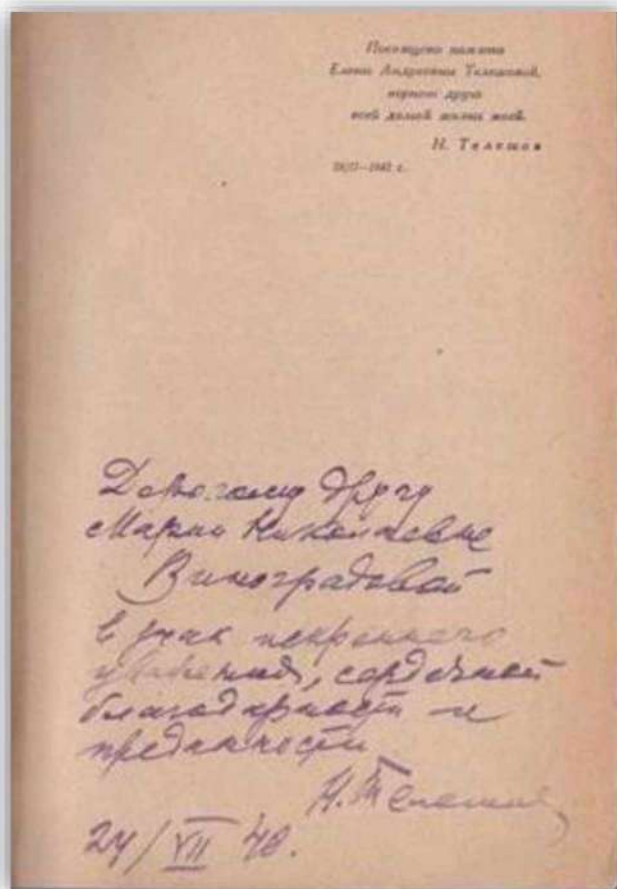 Посвящено памяти
Елены Андреевны Телешовой,
верного друга
всей долгой жизни моей.
Н. Телешов
1943 г.
Дорогому другу
Марии Николаевне
Виноградовой
в знак искреннего
уважения, сердечной
благодарности и
преданности
Н. Телешов
24/VII 48.